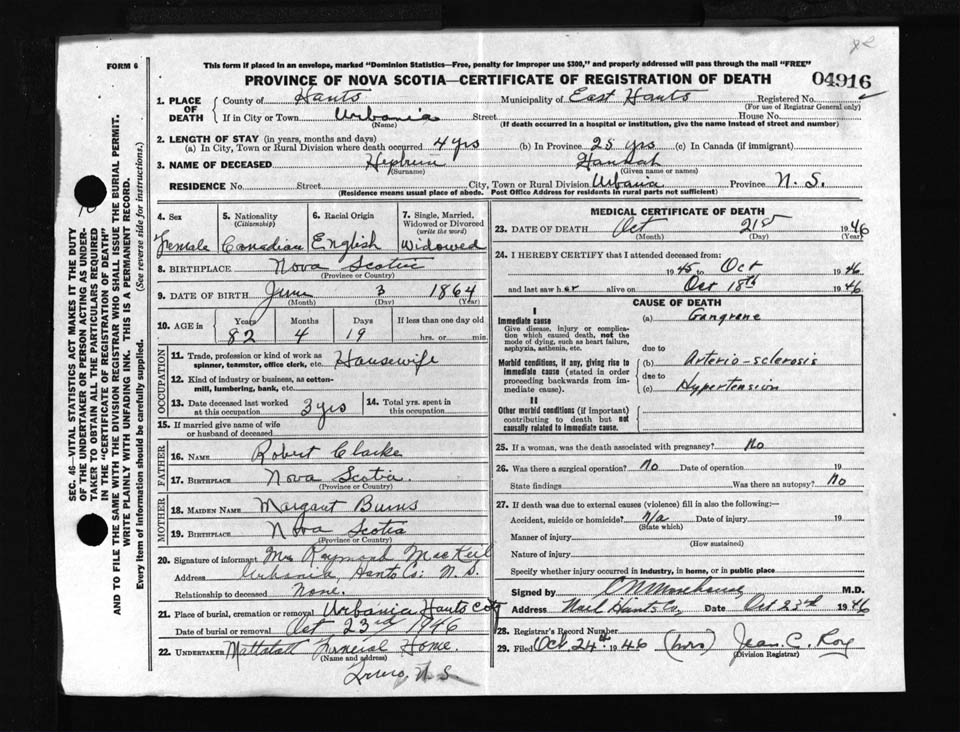 FORM 6
This form if placed in an envelope, marked "Dominion Statistics—Free, penalty for improper use $300," and properly addressed will pass through the mail "FREE"
PROVINCE OF NOVA SCOTIA—CERTIFICATE OF REGISTRATION OF DEATH
04916
SEC. 46—VITAL STATISTICS ACT MAKES IT THE DUTY
OF THE UNDERTAKER OR PERSON ACTING AS UNDER-
TAKER TO OBTAIN ALL THE PARTICULARS REQUIRED
IN THE "CERTIFICATE OF REGISTRATION OF DEATH"
AND TO FILE THE SAME WITH THE DIVISION REGISTRAR WHO SHALL ISSUE THE BURIAL PERMIT.
WRITE PLAINLY WITH UNFADING INK. THIS IS A PERMANENT RECORD.
Every item of information should be carefully supplied. (See reverse side for instructions.)
1. PLACE OF DEATH
County of Hants Municipality of East Hants Registered No.
(For use of Registrar General only)
If in City or Town Urbania Street House No.
(Name) (If death occurred in a hospital or institution, give the name instead of street and number)
2. LENGTH OF STAY (in years, months and days)
(a) In City, Town or Rural Division where death occurred 4 yrs (b) In Province 25 yrs (c) In Canada (if immigrant)
3. NAME OF DECEASED Hannah
(Surname) (Given name or names)
RESIDENCE No. Street City, Town or Rural Division Urbania Province N. S.
(Residence means usual place of abode. Post Office Address for residents in rural parts not sufficient)
4. Sex 5. Nationality (Citizenship) 6. Racial Origin 7. Single, Married, Widowed or Divorced (write the word)
Female Canadian English Widowed
8. BIRTHPLACE Nova Scotia
(Province or Country)
9. DATE OF BIRTH June 3 1864
(Month) (Day) (Year)
10. AGE in Years Months Days If less than one day old
82 4 19 hrs. or min.
OCCUPATION
11. Trade, profession or kind of work as
spinner, teamster, office clerk, etc. Housewife
12. Kind of industry or business, as cotton-
mill, lumbering, bank, etc.
13. Date deceased last worked at this occupation 3 yrs 14. Total yrs. spent in this occupation
15. If married give name of wife
or husband of deceased
FATHER
16. NAME Robert Clarke
17. BIRTHPLACE Nova Scotia.
(Province or Country)
MOTHER
18. MAIDEN NAME Margaret Burns
19. BIRTHPLACE Nova Scotia
(Province or Country)
20. Signature of informant Mrs Raymond MacKeil
Address Urbania, Hants Co; N. S.
Relationship to deceased None.
21. Place of burial, cremation or removal Urbania Hants Cty
Date of burial or removal Oct 23rd 1946
22. UNDERTAKER Mattatall Funeral Home.
(Name and address)
Truro, N. S.
MEDICAL CERTIFICATE OF DEATH
23. DATE OF DEATH Oct 21st 1946
(Month) (Day) (Year)
24. I HEREBY CERTIFY that I attended deceased from:
1945 to Oct 1946
and last saw her alive on Oct 18th 1946
CAUSE OF DEATH
I
Immediate cause (a) Gangrene
Give disease, injury or complica-
tion which caused death, not the
mode of dying, such as heart failure,
asphyxia, asthenia, etc.
due to
Morbid conditions, if any, giving rise to
immediate cause (stated in order
proceeding backwards from im-
mediate cause).
(b) Arterio-sclerosis
due to
(c) Hypertension
II
Other morbid conditions (if important)
contributing to death but not
causally related to immediate cause.
25. If a woman, was the death associated with pregnancy? No
26. Was there a surgical operation? No Date of operation 19
State findings Was there an autopsy? No
27. If death was due to external causes (violence) fill in also the following:—
Accident, suicide or homicide? n/a Date of injury 19
(State which)
Manner of injury
(How sustained)
Nature of injury
Specify whether injury occurred in industry, in home, or in public place
Signed by M.D.
Address Hants Co. Date Oct 23rd 1946
28. Registrar's Record Number
29. Filed Oct 24th 1946 (Mrs) Jean. C. Roy
(Division Registrar)